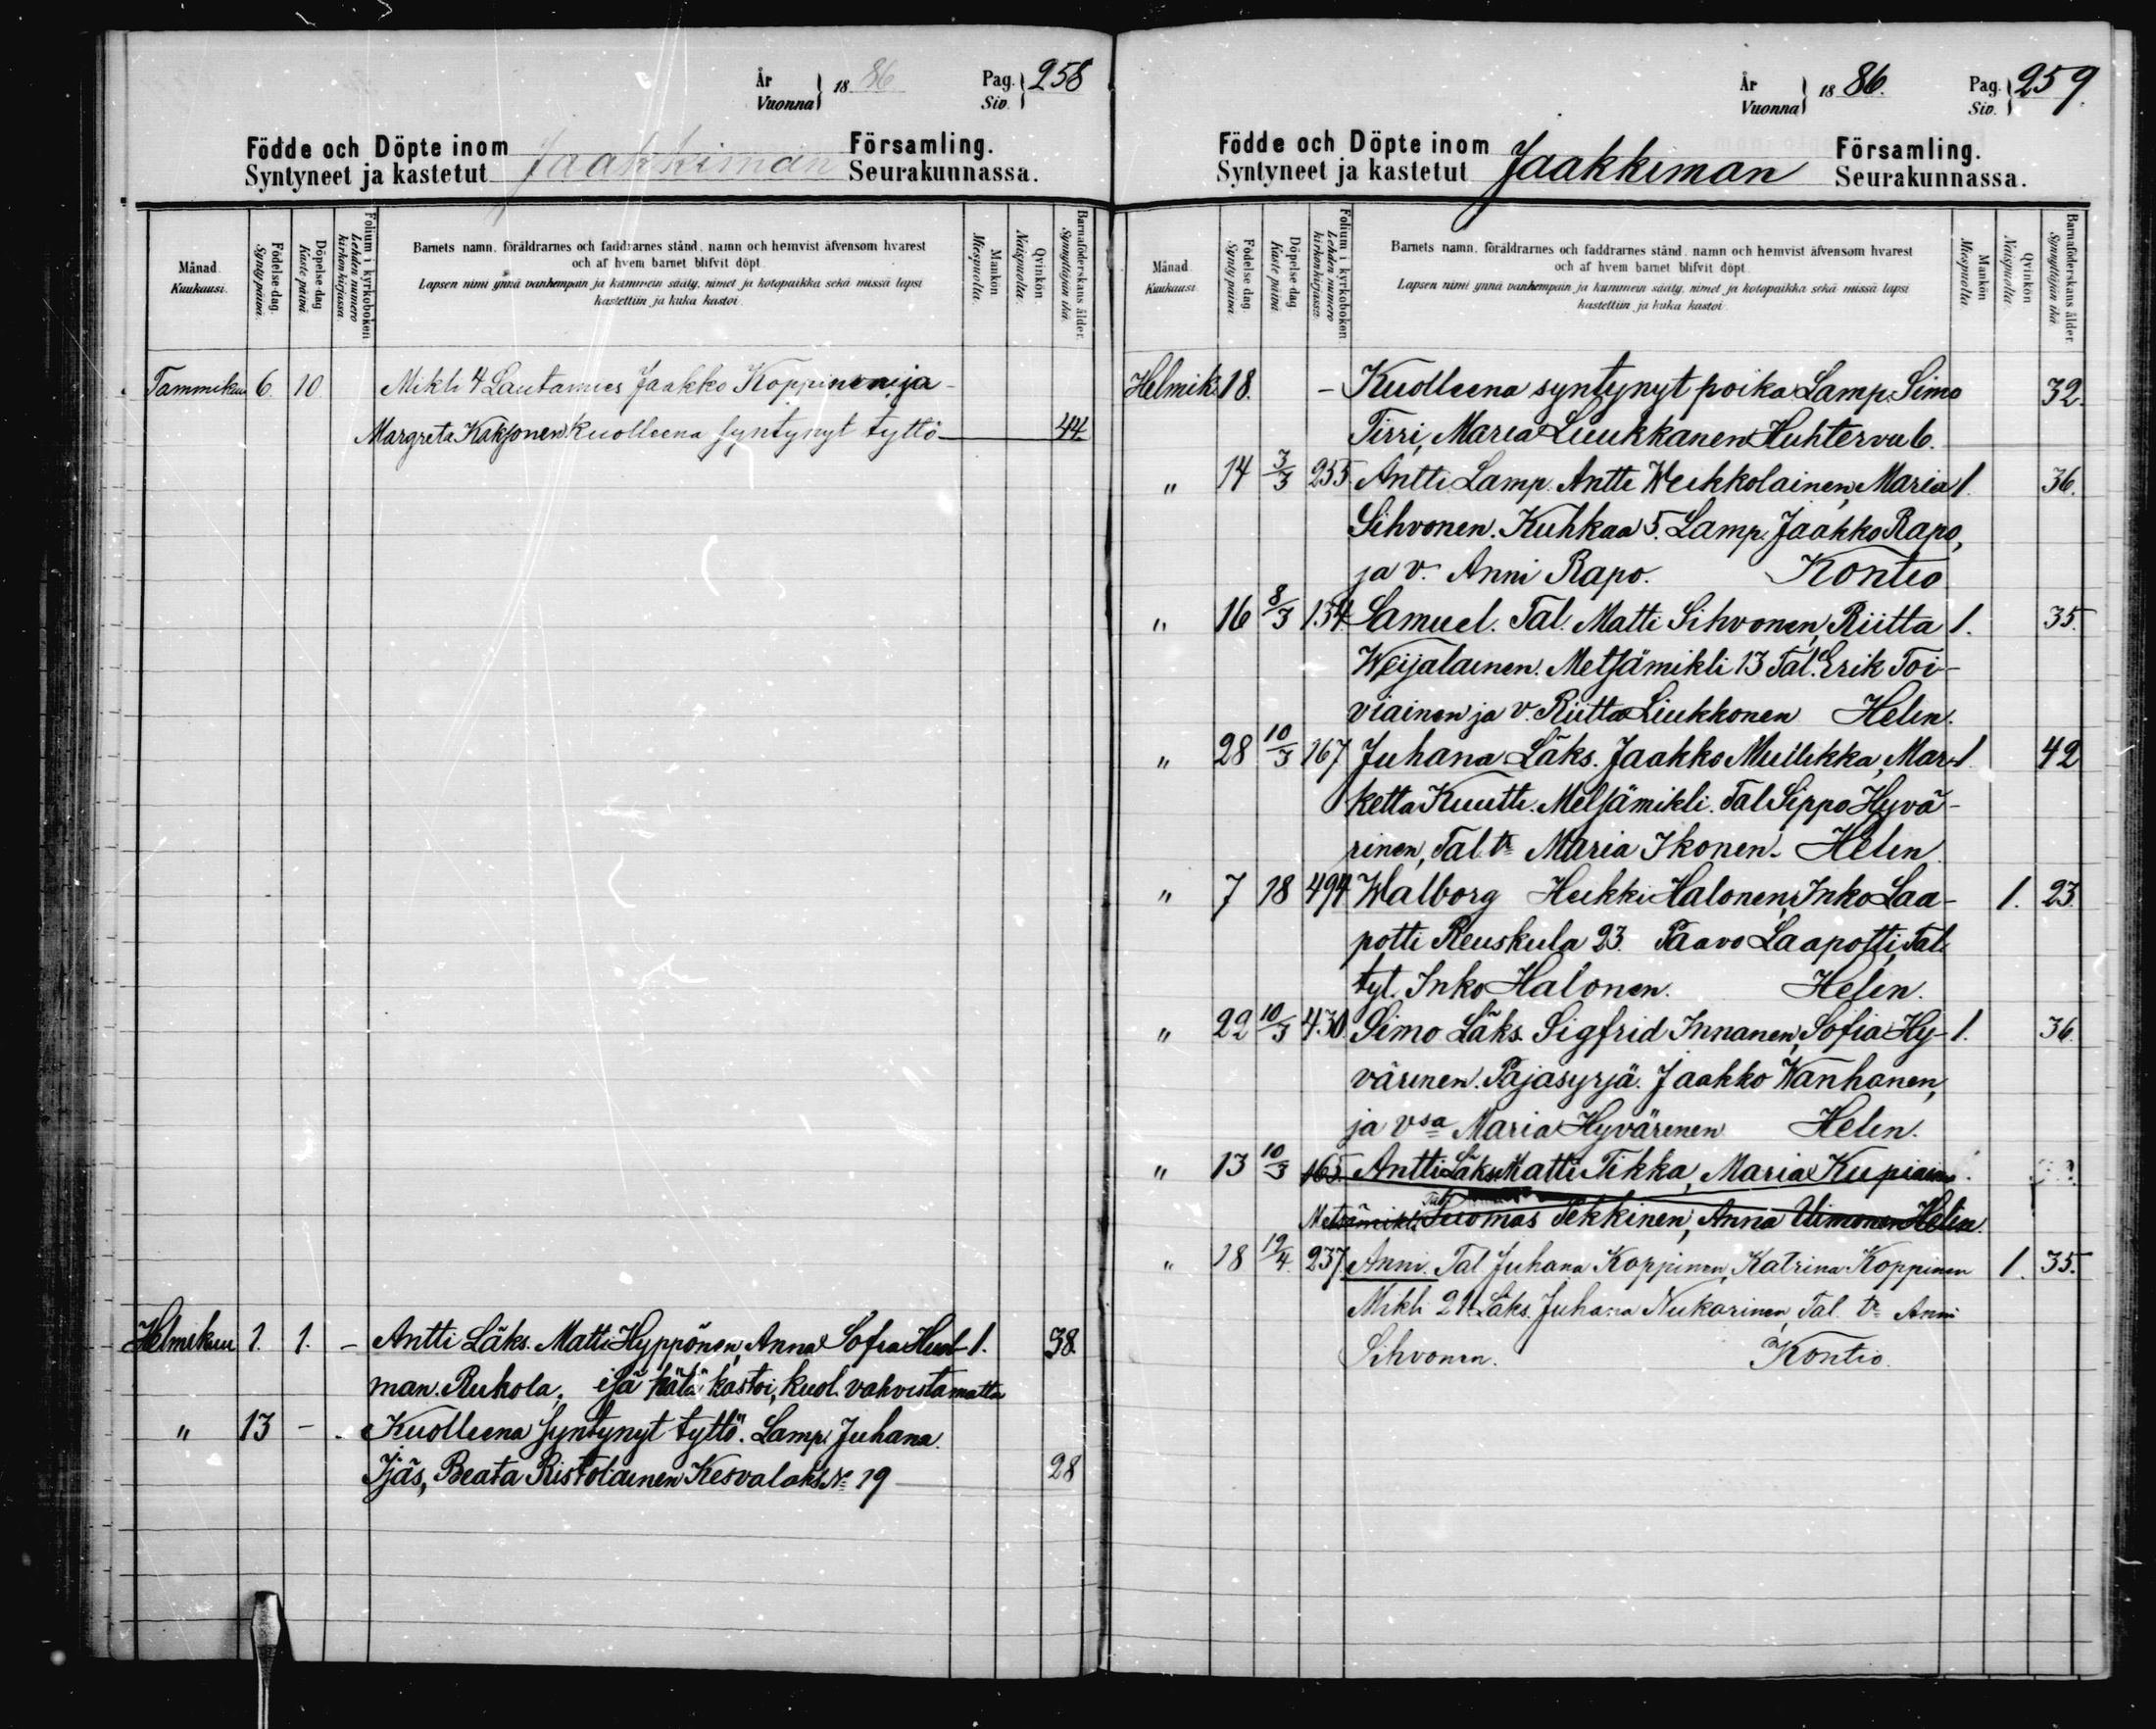 År
Vuonna } 18 86
Pag.
Siv. } 258
Födde och Döpte inom
Syntyneet ja kastetut Jaakkiman
Församling.
Seurakunnassa.
Månad.
Kuukausi.
Födelse dag.
Synty päivä.
Döpelse dag
Kaste päivä
Folium i kyrkoboken
Lehden numero kirkonkirjassa.
Barnets namn, föräldrarnes och faddrarnes stånd, namn och hemvist äfvensom hvarest
och af hvem barnet blifvit döpt.
Lapsen nimi ynnä vanhempain ja kummein sääty, nimet ja kotopaikka sekä missä lapsi
kastettiin ja kuka kastoi.
Mankön
Miespuolta.
Qvinkön
Naispuolta.
Barnaföderskans ålder.
Synnyttäjän ikä.
Tammikuu 6. 10 Mikli 4 Lautamies Jaakko Koppinen ja
Margreta Kaksonen kuolleena syntynyt tyttö 44.
Helmikuu 1. 1. – Antti Läks. Matti Hyppönen, Anna Sofia Hust- 1. 38.
man. Ruhola, isä hätä kastoi, kuol. vahvistamatta
" 13 – . Kuolleena syntynyt tyttö. Lamp. Juhana
Ijäs, Beata Ristolainen Kesvalaks No 19 28
År
Vuonna } 18 86.
Pag.
Siv. } 259.
Födde och Döpte inom
Syntyneet ja kastetut Jaakkiman
Församling.
Seurakunnassa.
Månad.
Kuukausi.
Födelse dag.
Synty päivä.
Döpelse dag
Kaste päivä
Folium i kyrkoboken
Lehden numero kirkonkirjassa.
Barnets namn, föräldrarnes och faddrarnes stånd, namn och hemvist äfvensom hvarest
och af hvem barnet blifvit döpt.
Lapsen nimi ynnä vanhempain ja kummein sääty, nimet ja kotopaikka sekä missä lapsi
kastettiin ja kuka kastoi.
Mankön
Miespuolta.
Qvinkön
Naispuolta.
Barnaföderskans ålder.
Synnyttäjän ikä.
Helmik. 18. – Kuolleena syntynyt poika Lamp. Simo 32.
Tirri, Maria Luukkanen Huhtervu 6.
" 14 3/3 255 Antti Lamp. Antti Weikkolainen, Maria 1. 36.
Sihvonen. Kuhkaa 5. Lamp. Jaakko Rapo,
ja v. Anni Rapo. Kontio
" 16 8/3 154 Samuel. Tal. Matti Sihvonen, Riitta 1. 35.
Weijalainen. Metsämikli 13 Tal. Erik Toi-
viainen ja v. Riitta Liukkonen Helen.
" 28 10/3 167 Juhana Läks. Jaakko Mullikka, Mar- 1 42
ketta Kuutti. Metsämikli. Tal Sippo Hyvä-
rinen, Tal. tr Maria Ikonen. Helen
" 7 18 494 Walborg Heikki Halonen, Inko Laa- 1. 23.
potti Reuskula 23. Paavo Laapotti, Tal.
tyt. Inko Halonen. Helen.
" 22 10/3 430. Simo Läks. Sigfrid Innanen, Sofia Hy- 1. 36.
värinen. Pajasyrjä. Jaakko Wanhanen,
ja vsa Maria Hyvärinen Helen.
" 13 10/3 165. Antti Läks. Matti Tikka, Maria Kupiainen
Metsämikli. Tal. Tuomas Tekkinen, Anna Uimonen Helen
" 18 12/4 237 Anni. Tal Juhana Koppinen, Katrina Koppinen 1. 35.
Mikli 21. Läks. Juhana Nukarinen, Tal. tr Anni
Sihvonen. Kontio.